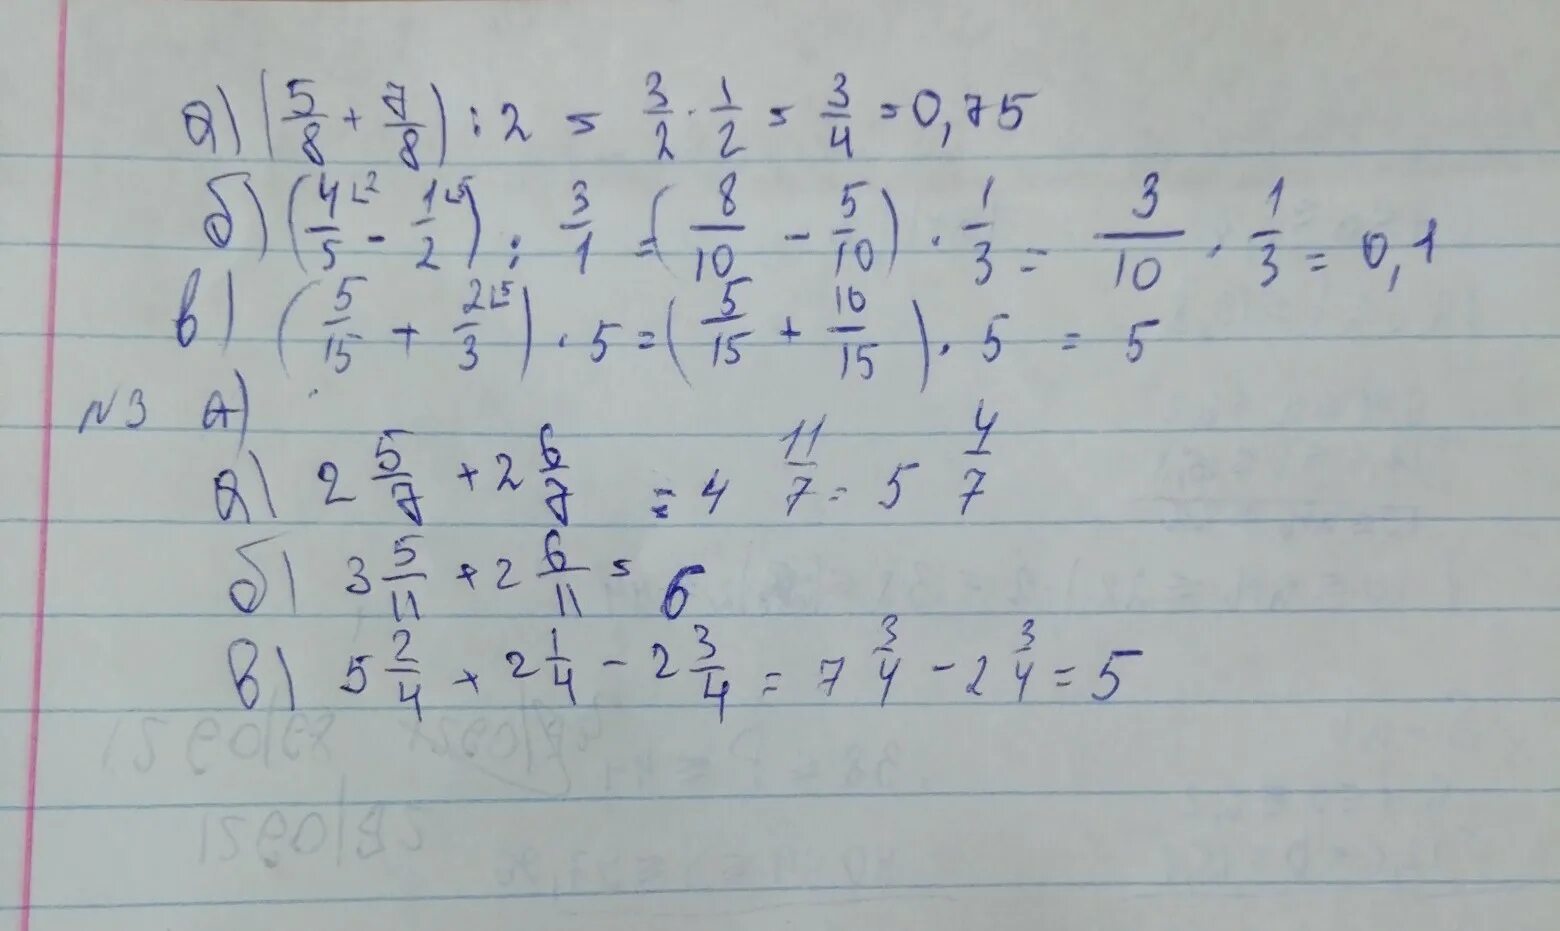 а) (5/8 + 7/8) : 2 = 3/2 · 1/2 = 3/4 = 0,75
б) (4/5 ⌊2 - 1/2 ⌊5) : 3/1 = (8/10 - 5/10) · 1/3 = 3/10 · 1/3 = 0,1
в) (5/15 + 2/3 ⌊5) · 5 = (5/15 + 10/15) · 5 = 5
№3 А)
а) 2 5/7 + 2 6/7 = 4 11/7 = 5 4/7
б) 3 5/11 + 2 6/11 = 6
в) 5 2/4 + 2 1/4 - 2 3/4 = 7 3/4 - 2 3/4 = 5